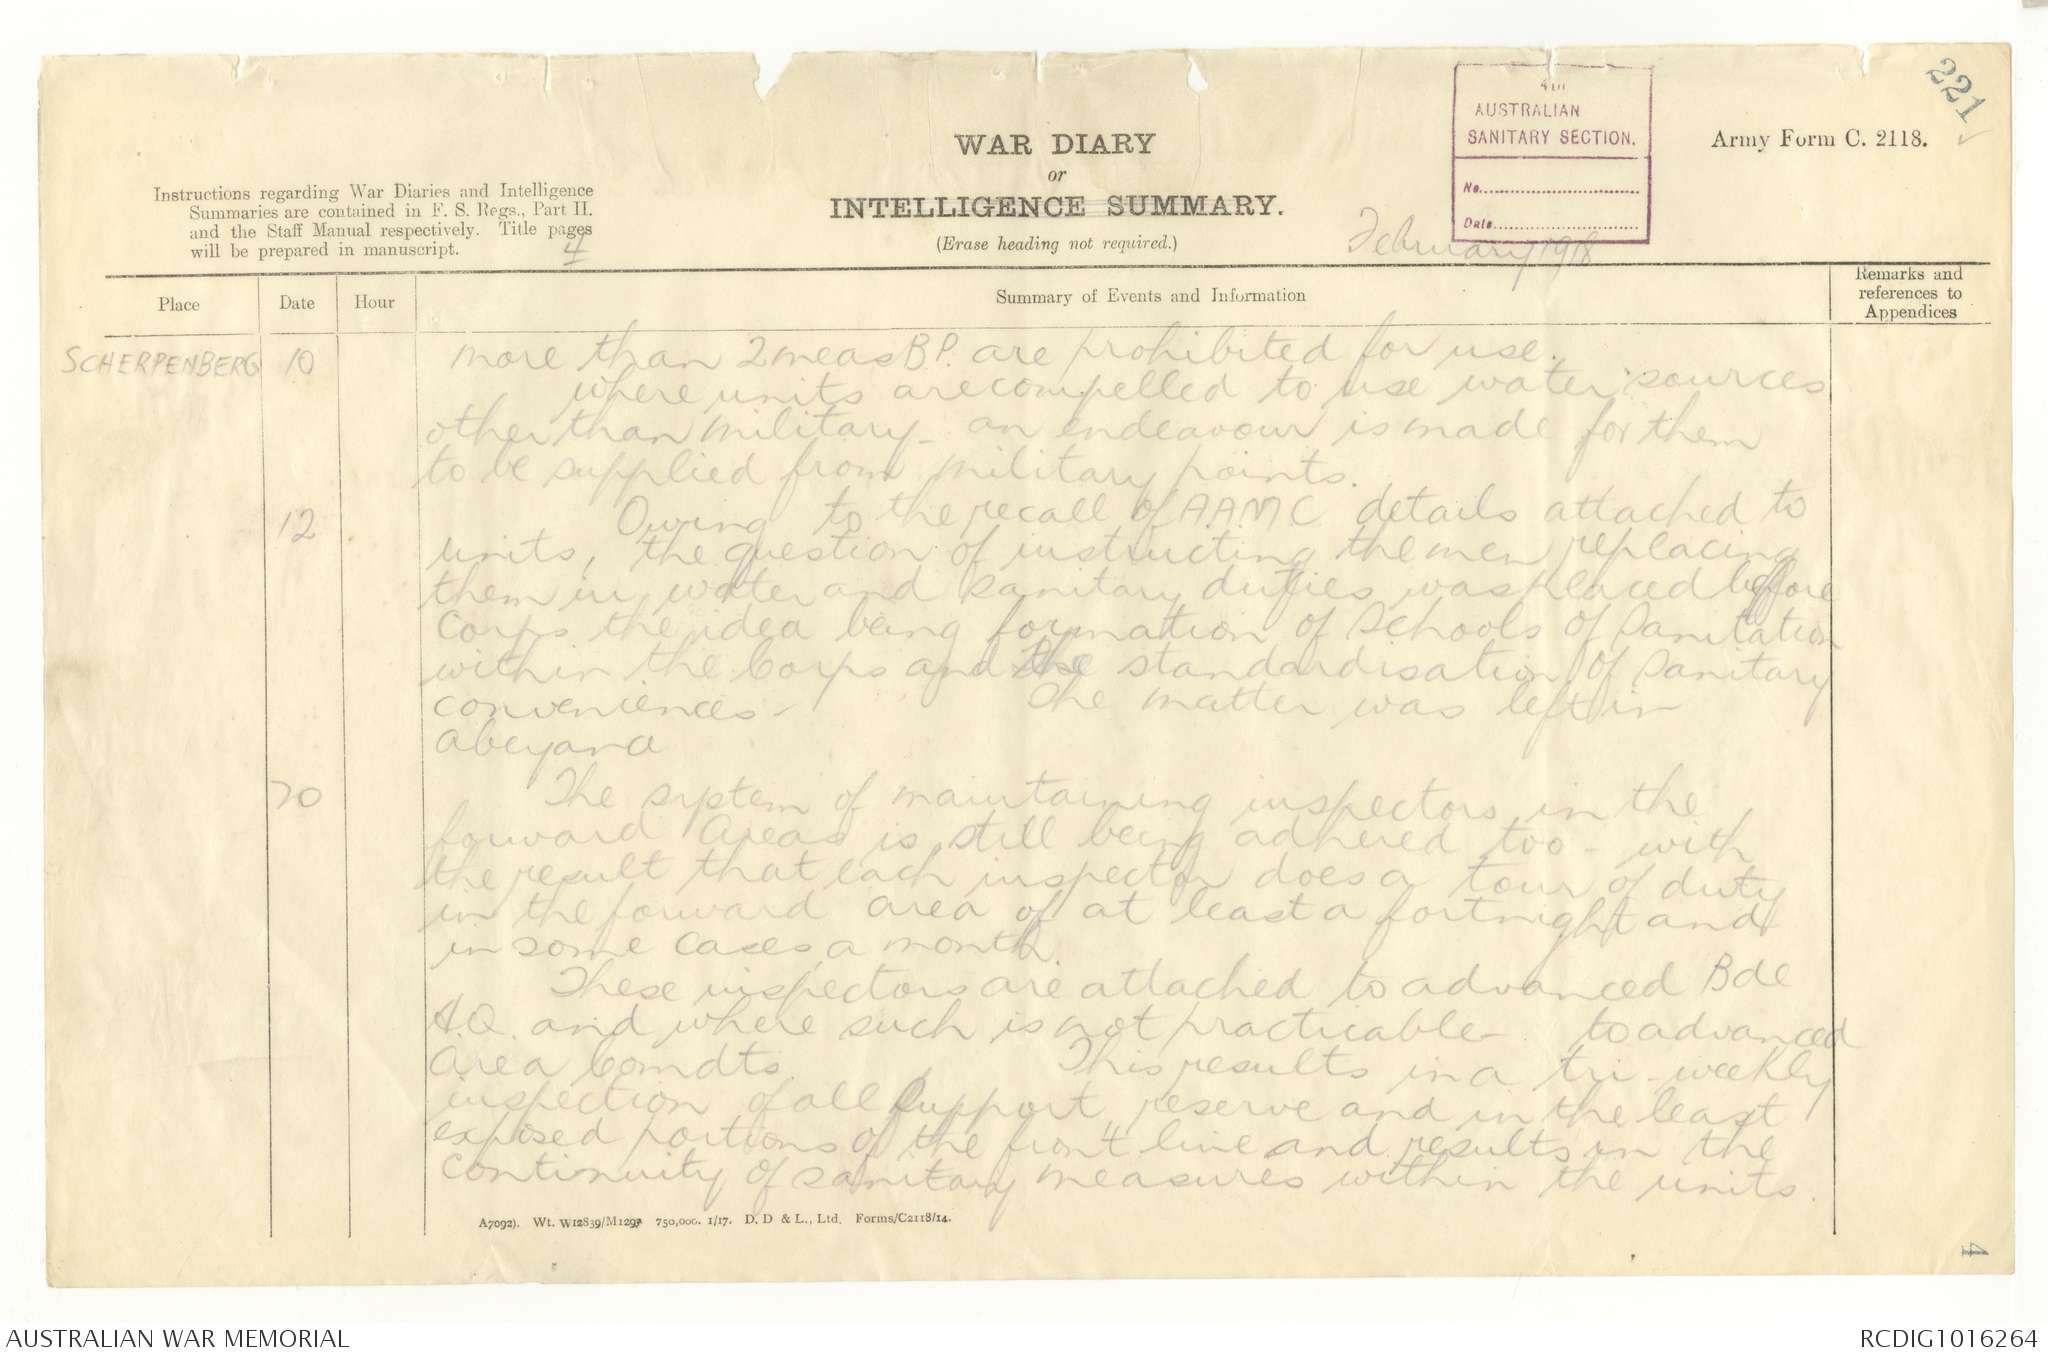 221
4th
AUSTRALIAN
SANITARY SECTION.
No.
Date
Army Form C. 2118.
WAR DIARY
or
INTELLIGENCE SUMMARY.
(Erase heading not required.)
Instructions regarding War Diaries and Intelligence
Summaries are contained in F. S. Regs., Part II.
and the Staff Manual respectively. Title pages
will be prepared in manuscript.
4
February 1918
Place
Date
Hour
Summary of Events and Information
Remarks and
references to
Appendices
SCHERPENBERG 10 more than 2 meas B.P. are prohibited for use.
where units are compelled to use water sources
other than military - an endeavour is made for them
to be supplied from military points.
12 Owing to the recall of A.A.M.C. details attached to
units, the question of instructing the men replacing
them in water and sanitary duties was placed before
Corps the idea being formation of Schools of Sanitation
within the Corps and the standardisation of sanitary
conveniences - The matter was left in
abeyance
20 The system of maintaining inspectors in the
forward areas is still being adhered too - with
the result that each inspector does a tour of duty
in the forward area of at least a fortnight and
in some cases a month.
These inspectors are attached to advanced Bde
H.Q. and where such is not practicable - to advanced
Area Comdts. This results in a tri-weekly
inspection of all support, reserve and in the least
exposed portions of the front line and results in the
continuity of sanitary measures within the units.
A7092). Wt. W12839/M1297 750,000. 1/17. D. D & L., Ltd. Forms/C2118/14.
4
AUSTRALIAN WAR MEMORIAL
RCDIG1016264